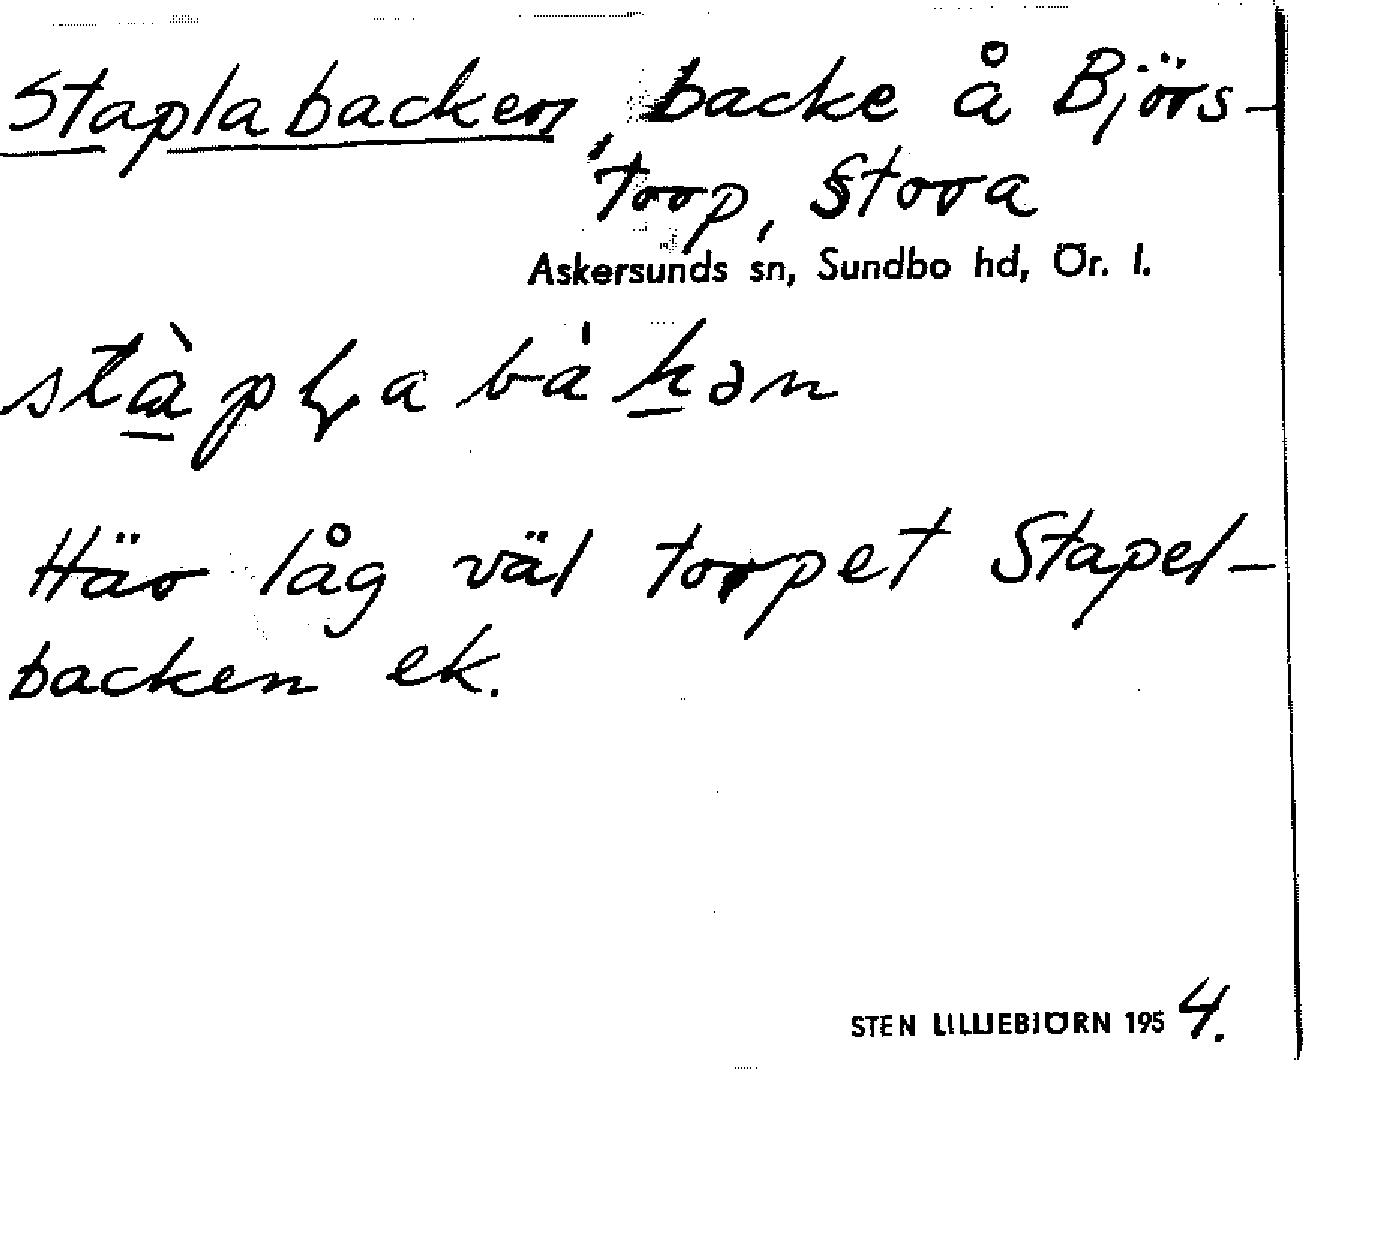 Staplabacken, backe å Björs-
torp, Stora
Askersunds sn, Sundbo hd, Ör. l.
stàpḷabákən
Här låg väl torpet Stapel-
backen ek.
STEN LILLIEBJÖRN 1954.